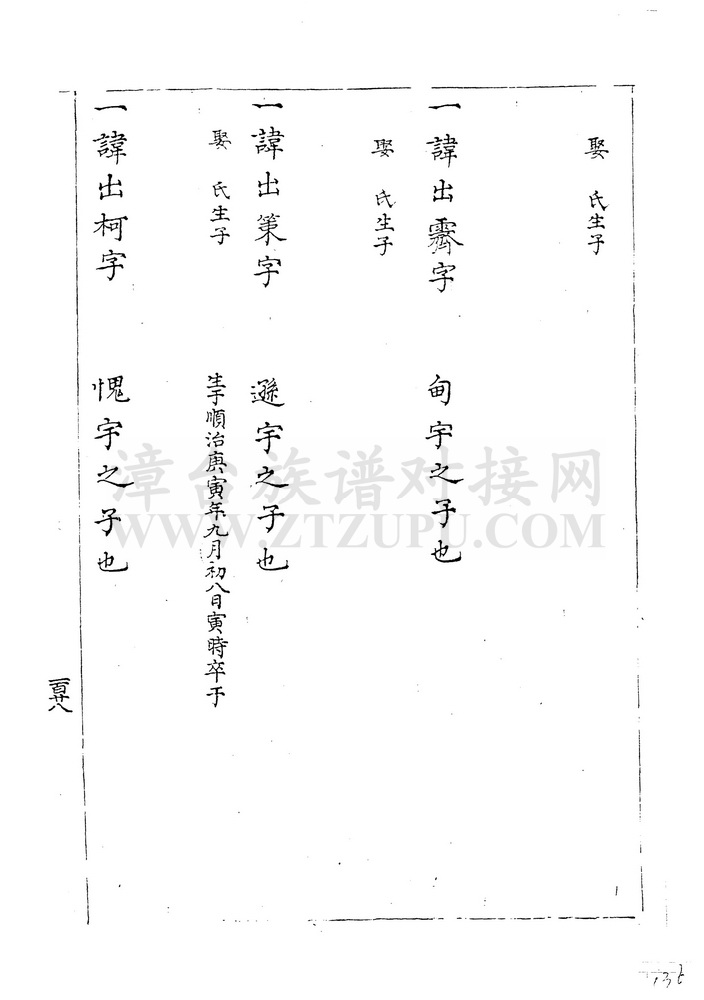 娶 氏生子
一諱出霽字 甸宇之子也
娶 氏生子
一諱出策字 遜宇之子也
生于順治庚寅年九月初八日寅時卒于
娶 氏生子
一諱出柯字 愧宇之子也
一百廿八
漳台族谱对接网
WWW.ZTZUPU.COM